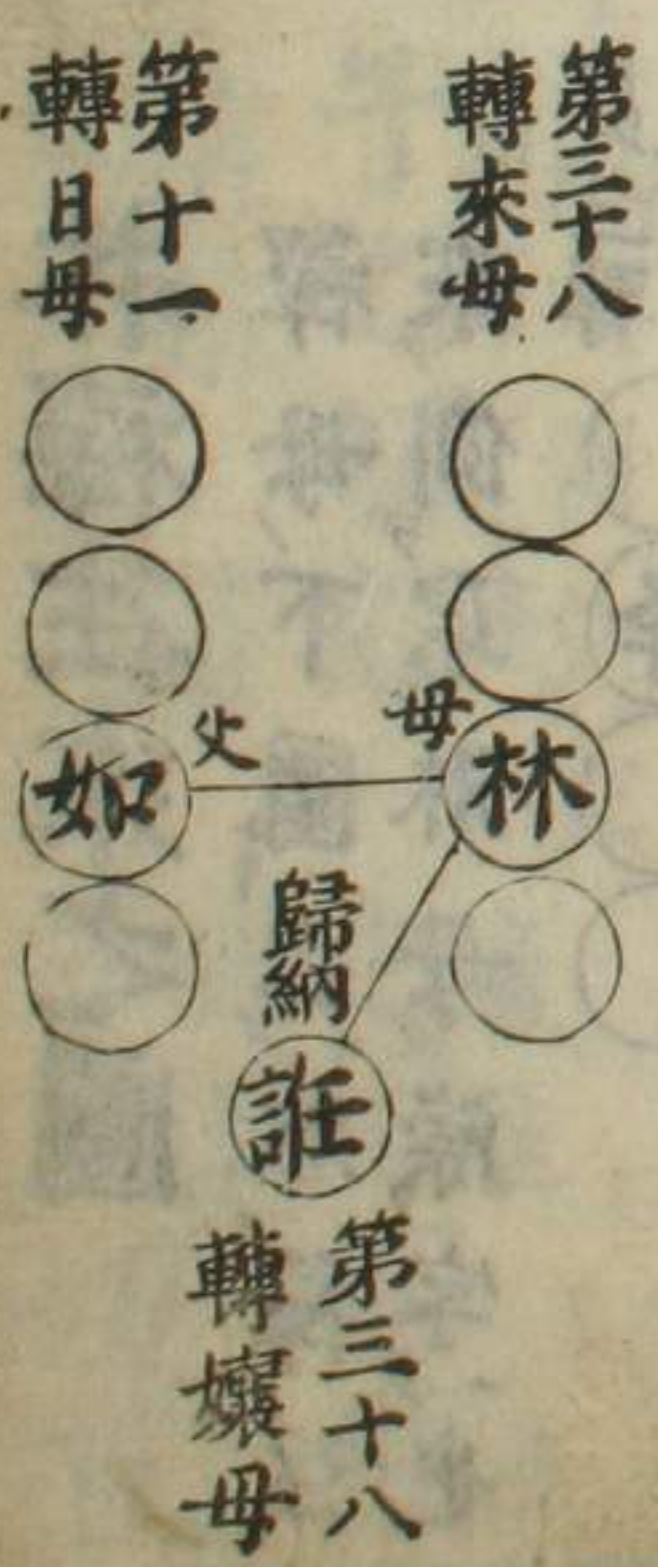 第三十八
轉來母
第十一
轉日母
母
林
父
如
歸納
誑
第三十八
轉孃母